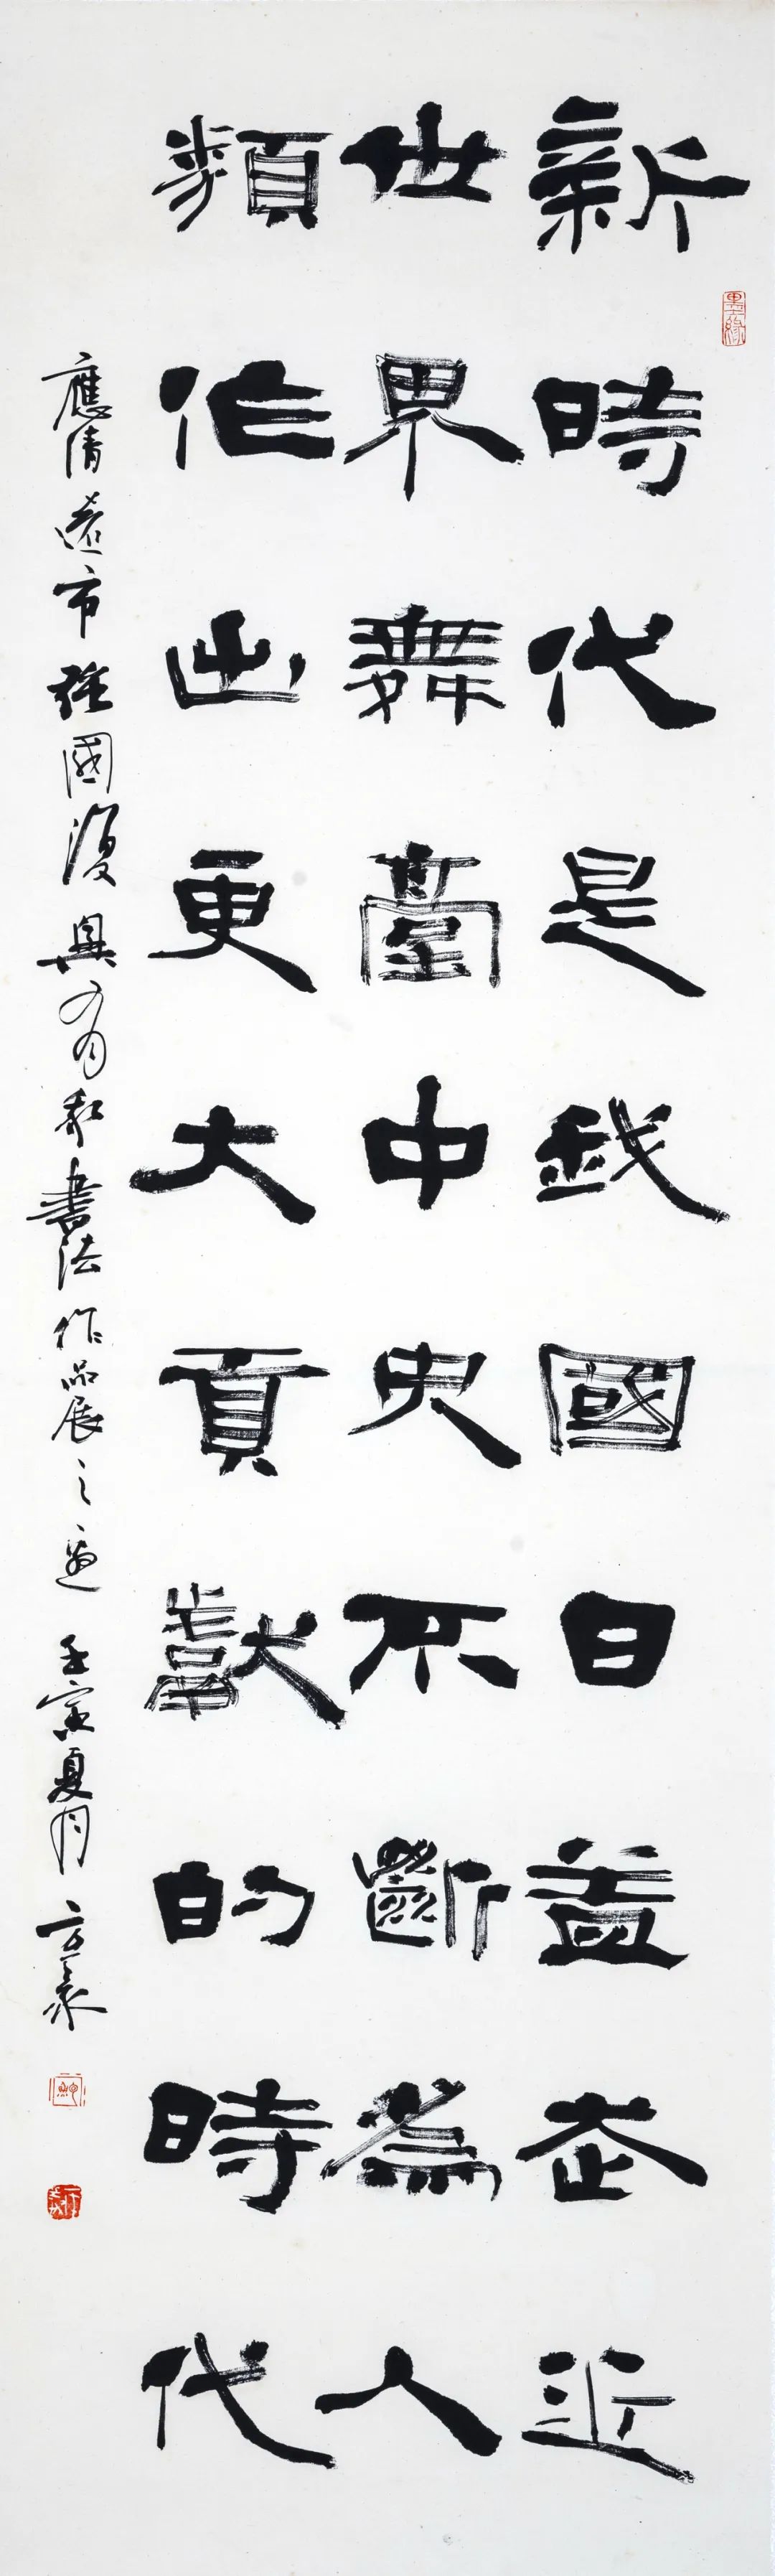 墨緣
新時代是我國日益走近
世界舞臺中央不斷為人
類作出更大貢獻的時代
應清遠市強國復興有我書法作品展之邀 壬寅夏月